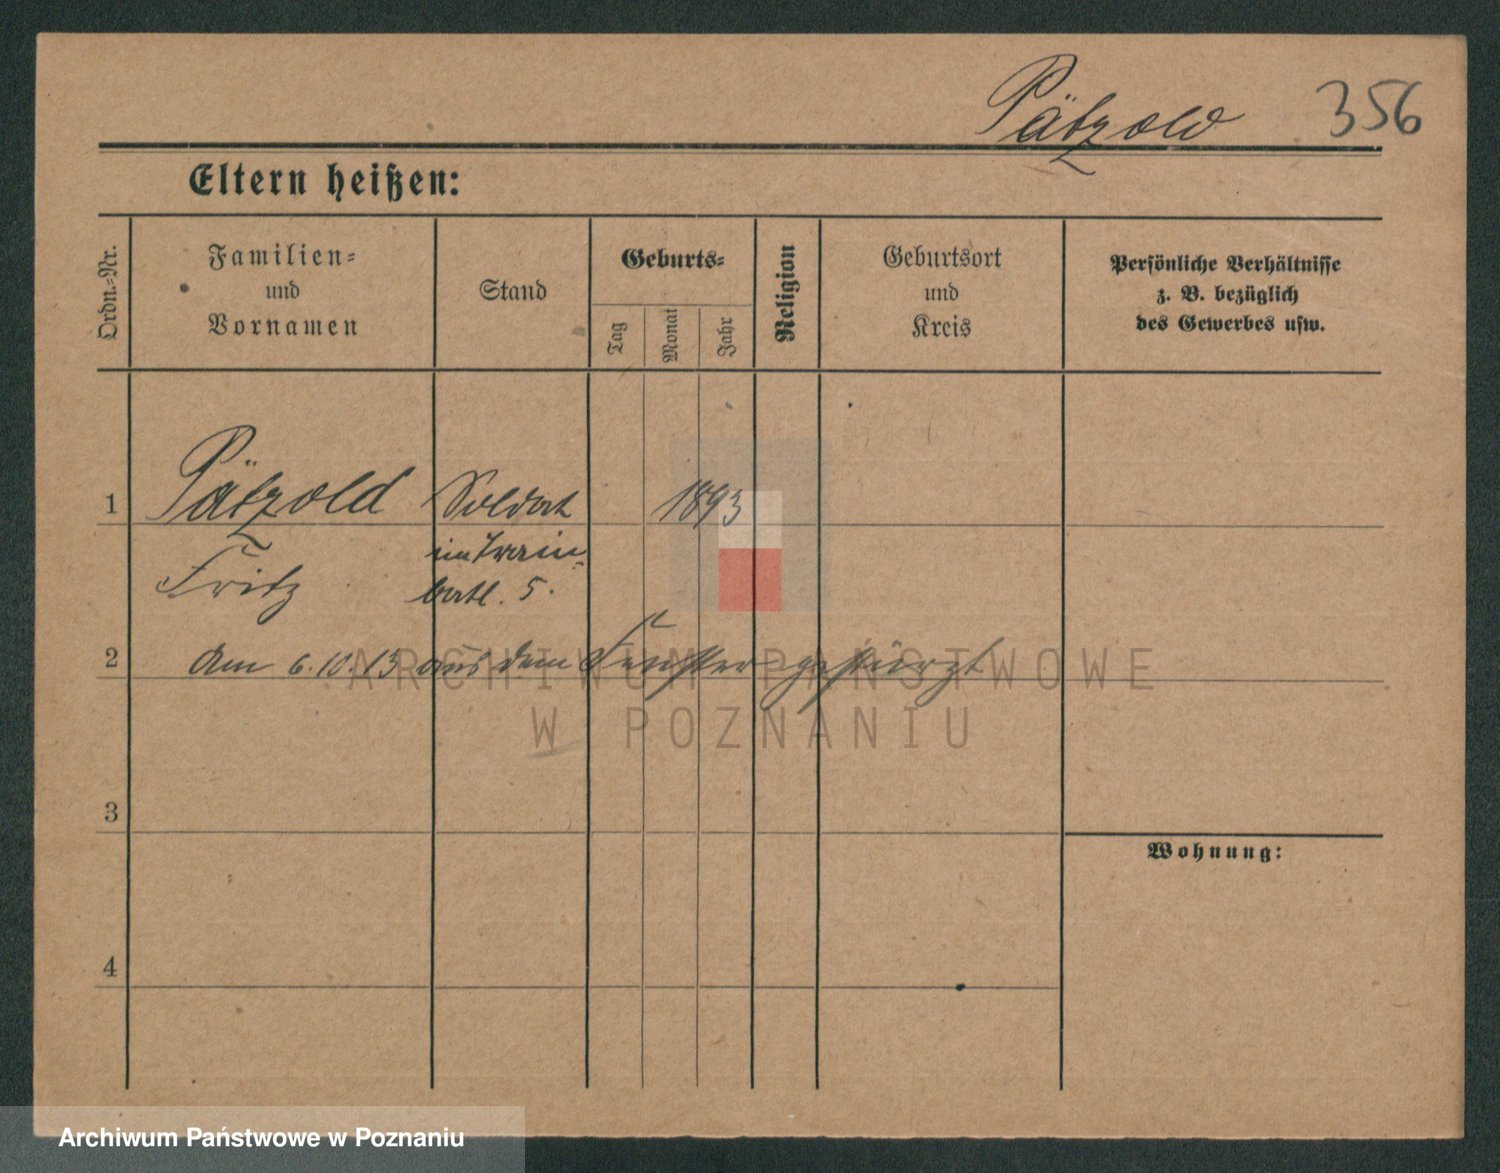 Pätzold 356
Eltern heißen:
Ordn.-Nr.
Familien-
und
Vornamen
Stand
Geburts-
Tag
Monat
Jahr
Religion
Geburtsort
und
Kreis
Persönliche Verhältnisse
z. B. bezüglich
des Gewerbes usw.
1 Pätzold Soldat 1893
Fritz im Train-
batl. 5.
2 Am 6.10.13 aus dem Fenster gestürzt
ARCHIWUM PAŃSTWOWE
W POZNANIU
3
Wohnung:
4
Archiwum Państwowe w Poznaniu